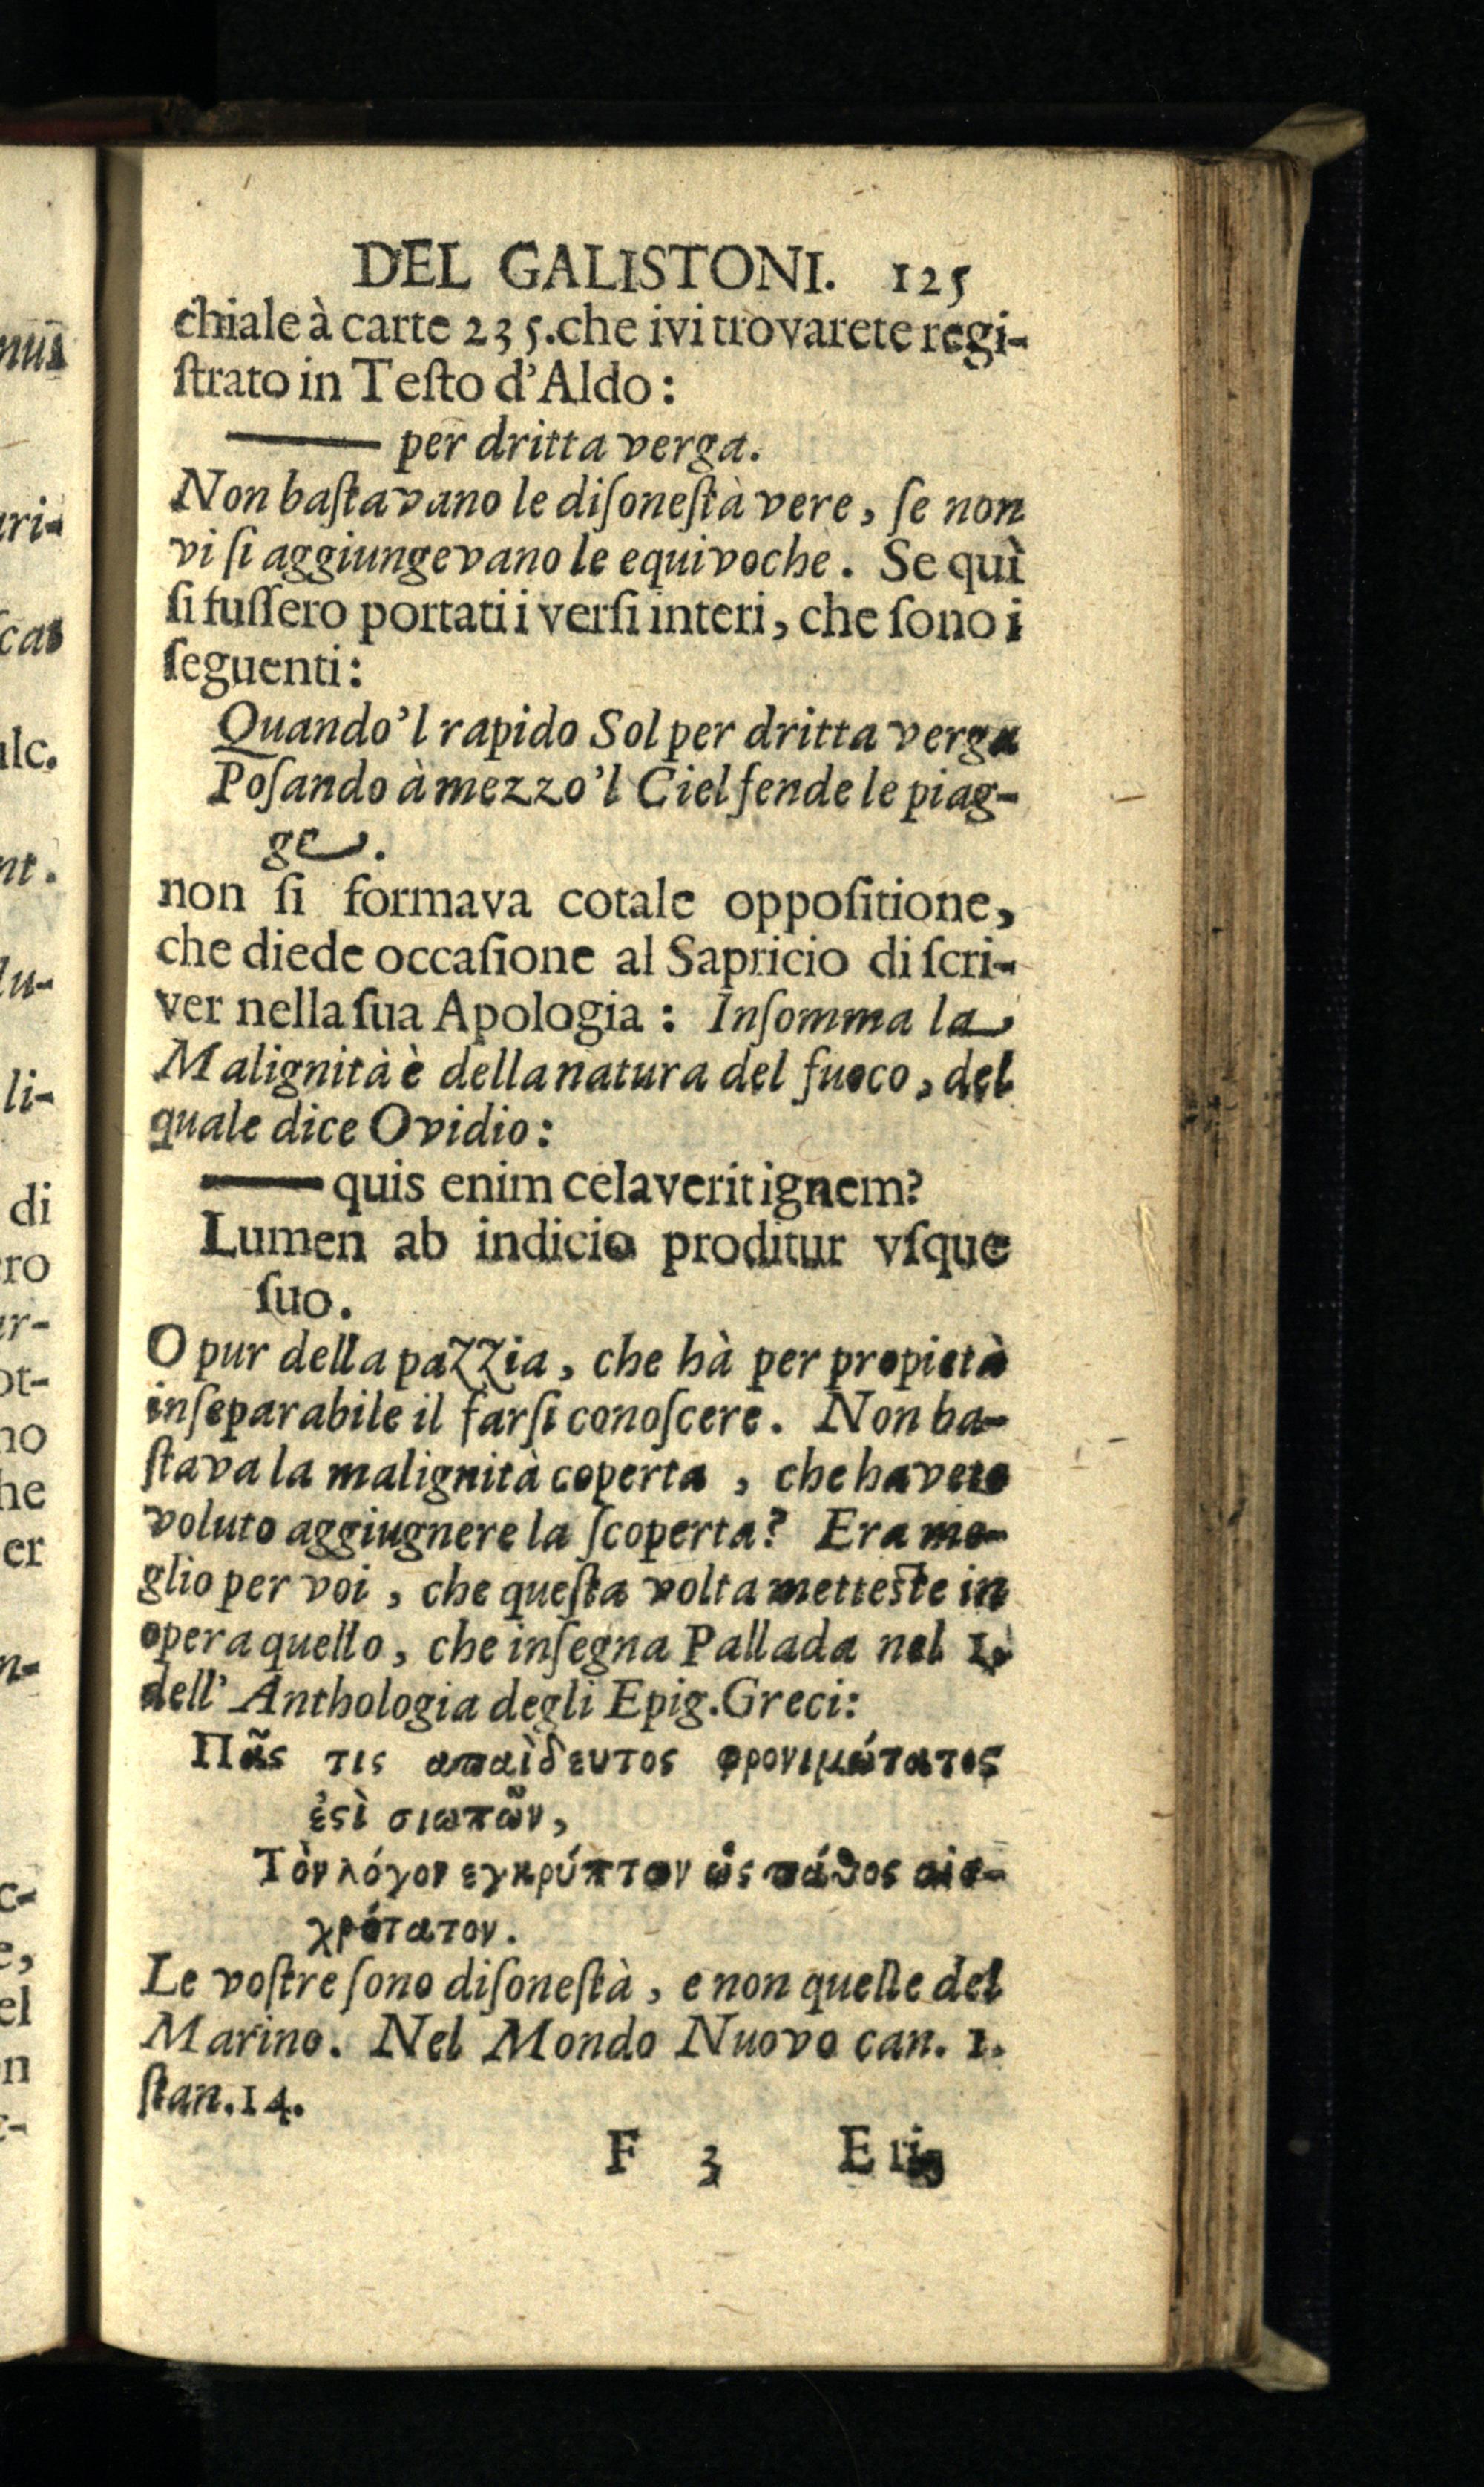 DEL GALISTONI. 125
chiale à carte 235.che ivi trovarete regi-
ſtrato in Teſto d'Aldo:
—— per dritta verga.
Non baſtavano le diſoneſtà vere, ſe non
vi ſi aggiungevano le equivoche. Se quì
ſi fuſſero portati i verſi interi, che ſono i
ſeguenti:
Quando'l rapido Sol per dritta verga
Poſando à mezzo'l Ciel fende le piag-
ge.
non ſi formava cotale oppoſitione,
che diede occaſione al Sapricio di ſcri-
ver nella ſua Apologia: Inſomma la
Malignità è della natura del fuoco, del
quale dice Ovidio:
—— quis enim celaverit ignem?
Lumen ab indicio proditur vſque
ſuo.
O pur della pazzia, che hà per propietà
inſeparabile il farſi conoſcere. Non ba-
ſtava la malignità coperta, che havete
voluto aggiugnere la ſcoperta? Era me-
glio per voi, che queſta volta metteſte in
opera quello, che inſegna Pallada nel 1.
dell' Anthologia degli Epig.Greci:
Πᾶς τις απαὶδευτος φρονιμώτατος
ἐςὶ σιωπῶν,
Τὸν λόγον εγκρύπτων ὡς πάθος αισ-
χρότατον.
Le voſtre ſono diſoneſtà, e non quelle del
Marino. Nel Mondo Nuovo can. 1.
ſtan.14.
F 3
nuı
ari-
ſcas
alc.
nt.
lu-
li-
di
ro
ar-
ot-
no
he
er
n-
c-
e,
el
n